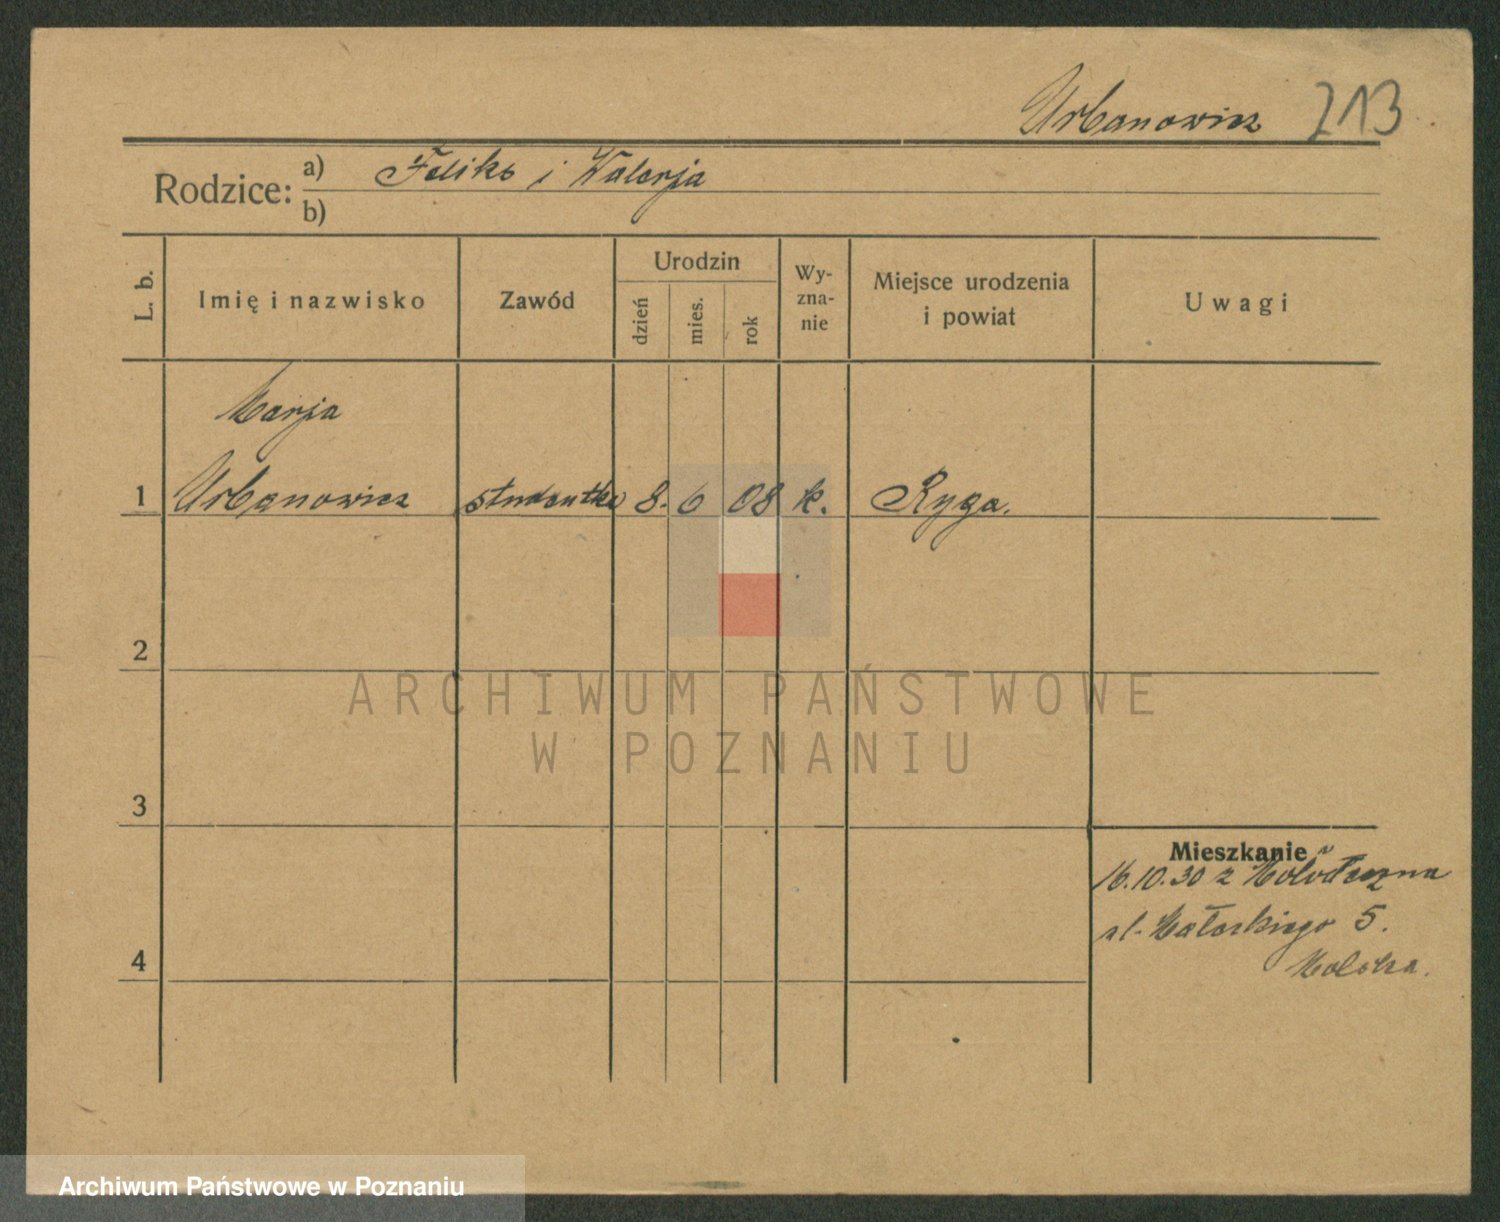 Urbanowicz 213
Rodzice: a) Feliks i Walerja
b)
L. b.
Imię i nazwisko
Zawód
Urodzin
dzień
mies.
rok
Wy-
zna-
nie
Miejsce urodzenia
i powiat
Uwagi
Marja
1 Urbanowicz studentka 8. 6 08 k. Ryga.
2
ARCHIWUM PAŃSTWOWE
W POZNANIU
3
Mieszkanie
16.10.30 z Mołodeczna
5.
4
Archiwum Państwowe w Poznaniu